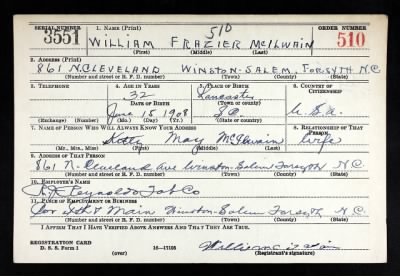 SERIAL NUMBER 1. NAME (Print) ORDER NUMBER
3551 510 510
WILLIAM FRAZIER McILWAIN
(First) (Middle) (Last)
2. ADDRESS (Print)
861 N.CLEVELAND WINSTON-SALEM, FORSYTH N.C.
(Number and street or R. F. D. number) (Town) (County) (State)
3. TELEPHONE 4. AGE IN YEARS 5. PLACE OF BIRTH 6. COUNTRY OF CITIZENSHIP
32 Lancaster
DATE OF BIRTH (Town or county)
June 15 1908 S.C. U.S.a.
(Exchange) (Number) (Mo.) (Day) (Yr.) (State or country)
7. NAME OF PERSON WHO WILL ALWAYS KNOW YOUR ADDRESS 8. RELATIONSHIP OF THAT PERSON
May McIlwain wife
(Mr., Mrs., Miss) (First) (Middle) (Last)
9. ADDRESS OF THAT PERSON
861 N. Cleveland Ave Winston-Salem Forsyth N.C.
(Number and street or R. F. D. number) (Town) (County) (State)
10. EMPLOYER'S NAME
R.J. Reynolds Tob Co
11. PLACE OF EMPLOYMENT OR BUSINESS
Cor & Main Winston-Salem Forsyth N.C.
(Number and street or R. F. D. number) (Town) (County) (State)
I AFFIRM THAT I HAVE VERIFIED ABOVE ANSWERS AND THAT THEY ARE TRUE.
REGISTRATION CARD
D. S. S. Form 1 16-17105 William
(over) (Registrant's signature)